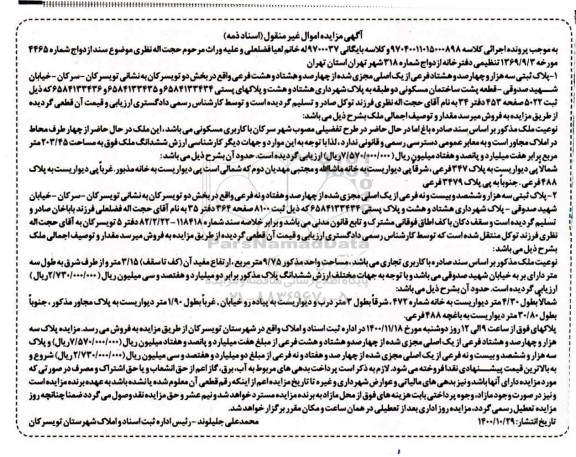 آگهی مزایده اموال غیر منقول (اسناد ذمه)
به موجب پرونده اجرائی کلاسه ۹۷۰۴۰۰۱۱۰۱۵۰۰۰۸۹۸ و کلاسه بایگانی ۹۷۰۰۰۳۷ له خانم لعیا فضلعلی و علیه وراث مرحوم حجت اله نظری موضوع سند ازدواج شماره ۴۴۶۵
مورخه ۱۳۶۹/۹/۳ تنظیمی دفترخانه ازدواج شماره ۳۱۸ شهر تهران استان تهران
۱-پلاک ثبتی سه هزار و چهارصد و هشتاد فرعی از یک اصلی مجزی شده از چهارصد و هشتاد و هشت فرعی واقع در بخش دو تویسرکان به نشانی تویسرکان - سرکان - خیابان
شهید صدوقی - قطعه پشت ساختمان مسکونی دو طبقه به پلاک شهرداری هشتاد و هشت و پلاکهای پستی ۶۵۸۴۱۳۳۴۳۴ و ۶۵۸۴۱۳۳۴۳۵ و ۶۵۸۴۱۳۳۴۳۶ که ذیل
ثبت ۵۰۲۲ صفحه ۴۵۳ دفتر ۳۴ به نام آقای حجت اله نظری فرزند توکل صادر و تسلیم گردیده است و توسط کارشناس رسمی دادگستری ارزیابی و قیمت آن قطعی گردیده
از طریق مزایده به فروش میرسد مقدار و توصیف اجمالی ملک بشرح ذیل می باشد:
نوعیت ملک مذکور بر اساس سند صادره باغ اما در حال حاضر در طرح تفضیلی مصوب شهر سرکان با کاربری مسکونی می باشد، این ملک در حال حاضر از چهار طرف محاط
در املاک مجاور است و به معابر عمومی دسترسی رسمی و قانونی ندارد، لذا با توجه به این موارد و جهات دیگر کارشناسی ارزش ششدانگ ملک فوق به مساحت ۲۰۳/۴۵ متر
مربع برابر هفت میلیارد و پانصد و هفتاد میلیون ریال (۷/۵۷۰/۰۰۰/۰۰۰ ریال) ارزیابی گردیده است. حدود آن بشرح ذیل می باشد:
شمالا پی دیواریست به پلاک ۳۴۷ فرعی، شرقا پی دیواریست به خانه ماشااله و مجتبی مهدیان دوم که شمالی است پی دیواریست به خانه مذبور. غرباً پی دیواریست به پلاک
۴۸۸ فرعی. جنوباً به پی پلاک ۳۴۷۹ فرعی
۲- پلاک ثبتی سه هزار و ششصد و بیست و نه فرعی از یک اصلی مجزی شده از چهارصد و هفتاد و نه فرعی واقع در بخش دو تویسرکان به نشانی تویسرکان - سرکان - خیابان
شهید صدوقی - پلاک شهرداری هشتاد و هشت و پلاک پستی ۶۵۸۴۱۳۳۴۳۴ که ذیل ثبت ۸۱۰۰ صفحه ۳۶۴ دفتر ۳۵ به نام آقای حجت اله فضلعلی فرزند باباخان صادر و
تسلیم گردیده است و سقف دکان با کف اطاق فوقانی مشترک و تابع قانون مدنی می باشد و برابر خلاصه سند شماره ۱۱۸۴۱۸-۸۲/۲/۲۲ دفتر ۵ تویسرکان به آقای حجت اله
نظری فرزند توکل منتقل شده است که توسط کارشناس رسمی دادگستری ارزیابی و قیمت آن قطعی گردیده از طریق مزایده به فروش میرسد مقدار و توصیف اجمالی ملک
بشرح ذیل می باشد:
نوعیت ملک مذکور بر اساس سند صادره با کاربری تجاری می باشد. مساحت واحد مذکور ۹/۷۵ متر مربع، ارتفاع مفید آن (کف تا سقف) ۳/۱۵ متر و از طرف شرق به طول سه
متر دارای بر به خیابان شهید صدوقی می باشد و با توجه به جهات مختلف ارزش ششدانگ پلاک مذکور برابر دو میلیارد و هفتصد و سی میلیون ریال (۲/۷۳۰/۰۰۰/۰۰۰ ریال)
ارزیابی گردیده است. حدود آن بشرح ذیل می باشد:
شمالا بطول ۴/۳۰ متر دیواریست به خانه شماره ۴۷۲، شرقاً بطول ۳ متر درب و دیواریست به پیاده رو خیابان، غرباً بطول ۱/۹۰ متر دیواریست به پلاک مجاور مذکور، جنوباً
بطول ۳۰/۸۰ متر دیواریست به باغچه ۴۸۸ فرعی.
پلاکهای فوق از ساعت ۹ الی ۱۲ روز دوشنبه مورخ ۱۴۰۰/۱۱/۱۸ در اداره ثبت اسناد و املاک واقع در شهرستان تویسرکان از طریق مزایده به فروش می رسد. مزایده پلاک سه
هزار و چهارصد و هشتاد فرعی از یک اصلی مجزی شده از چهارصد و هشتاد و هشت فرعی از مبلغ هفت میلیارد و پانصد و هفتاد میلیون ریال (۷/۵۷۰/۰۰۰/۰۰۰ ریال) و پلاک
سه هزار و ششصد و بیست و نه فرعی از یک اصلی مجزی شده از چهارصد و هفتاد و نه فرعی از مبلغ دو میلیارد و هفتصد و سی میلیون ریال (۲/۷۳۰/۰۰۰/۰۰۰ ریال) شروع و
به بالاترین قیمت پیشنهادی نقدا فروخته می شود. لازم به ذکر است پرداخت بدهی های مربوط به آب، برق، گاز اعم از حق انشعاب و یا حق اشتراک و مصرف در صورتی که
مورد مزایده دارای آنها باشد و نیز بدهی های مالیاتی و عوارض شهرداری و غیره تا تاریخ مزایده اعم از اینکه رقم قطعی آن معلوم شده یا نشده باشد به عهده برنده مزایده است
و نیز در صورت وجود مازاد، وجوه پرداختی بابت هزینه های فوق از محل مازاد به برنده مزایده مسترد خواهد شد و نیم عشر و حق مزایده نقد وصول می گردد ضمنا چنانچه روز
مزایده تعطیل رسمی گردد، مزایده روز اداری بعد از تعطیلی در همان ساعت و مکان مقرر برگزار خواهد شد.
تاریخ انتشار: ۱۴۰۰/۱۰/۲۹ محمدعلی جلیلوند - رئیس اداره ثبت اسناد و املاک شهرستان تویسرکان